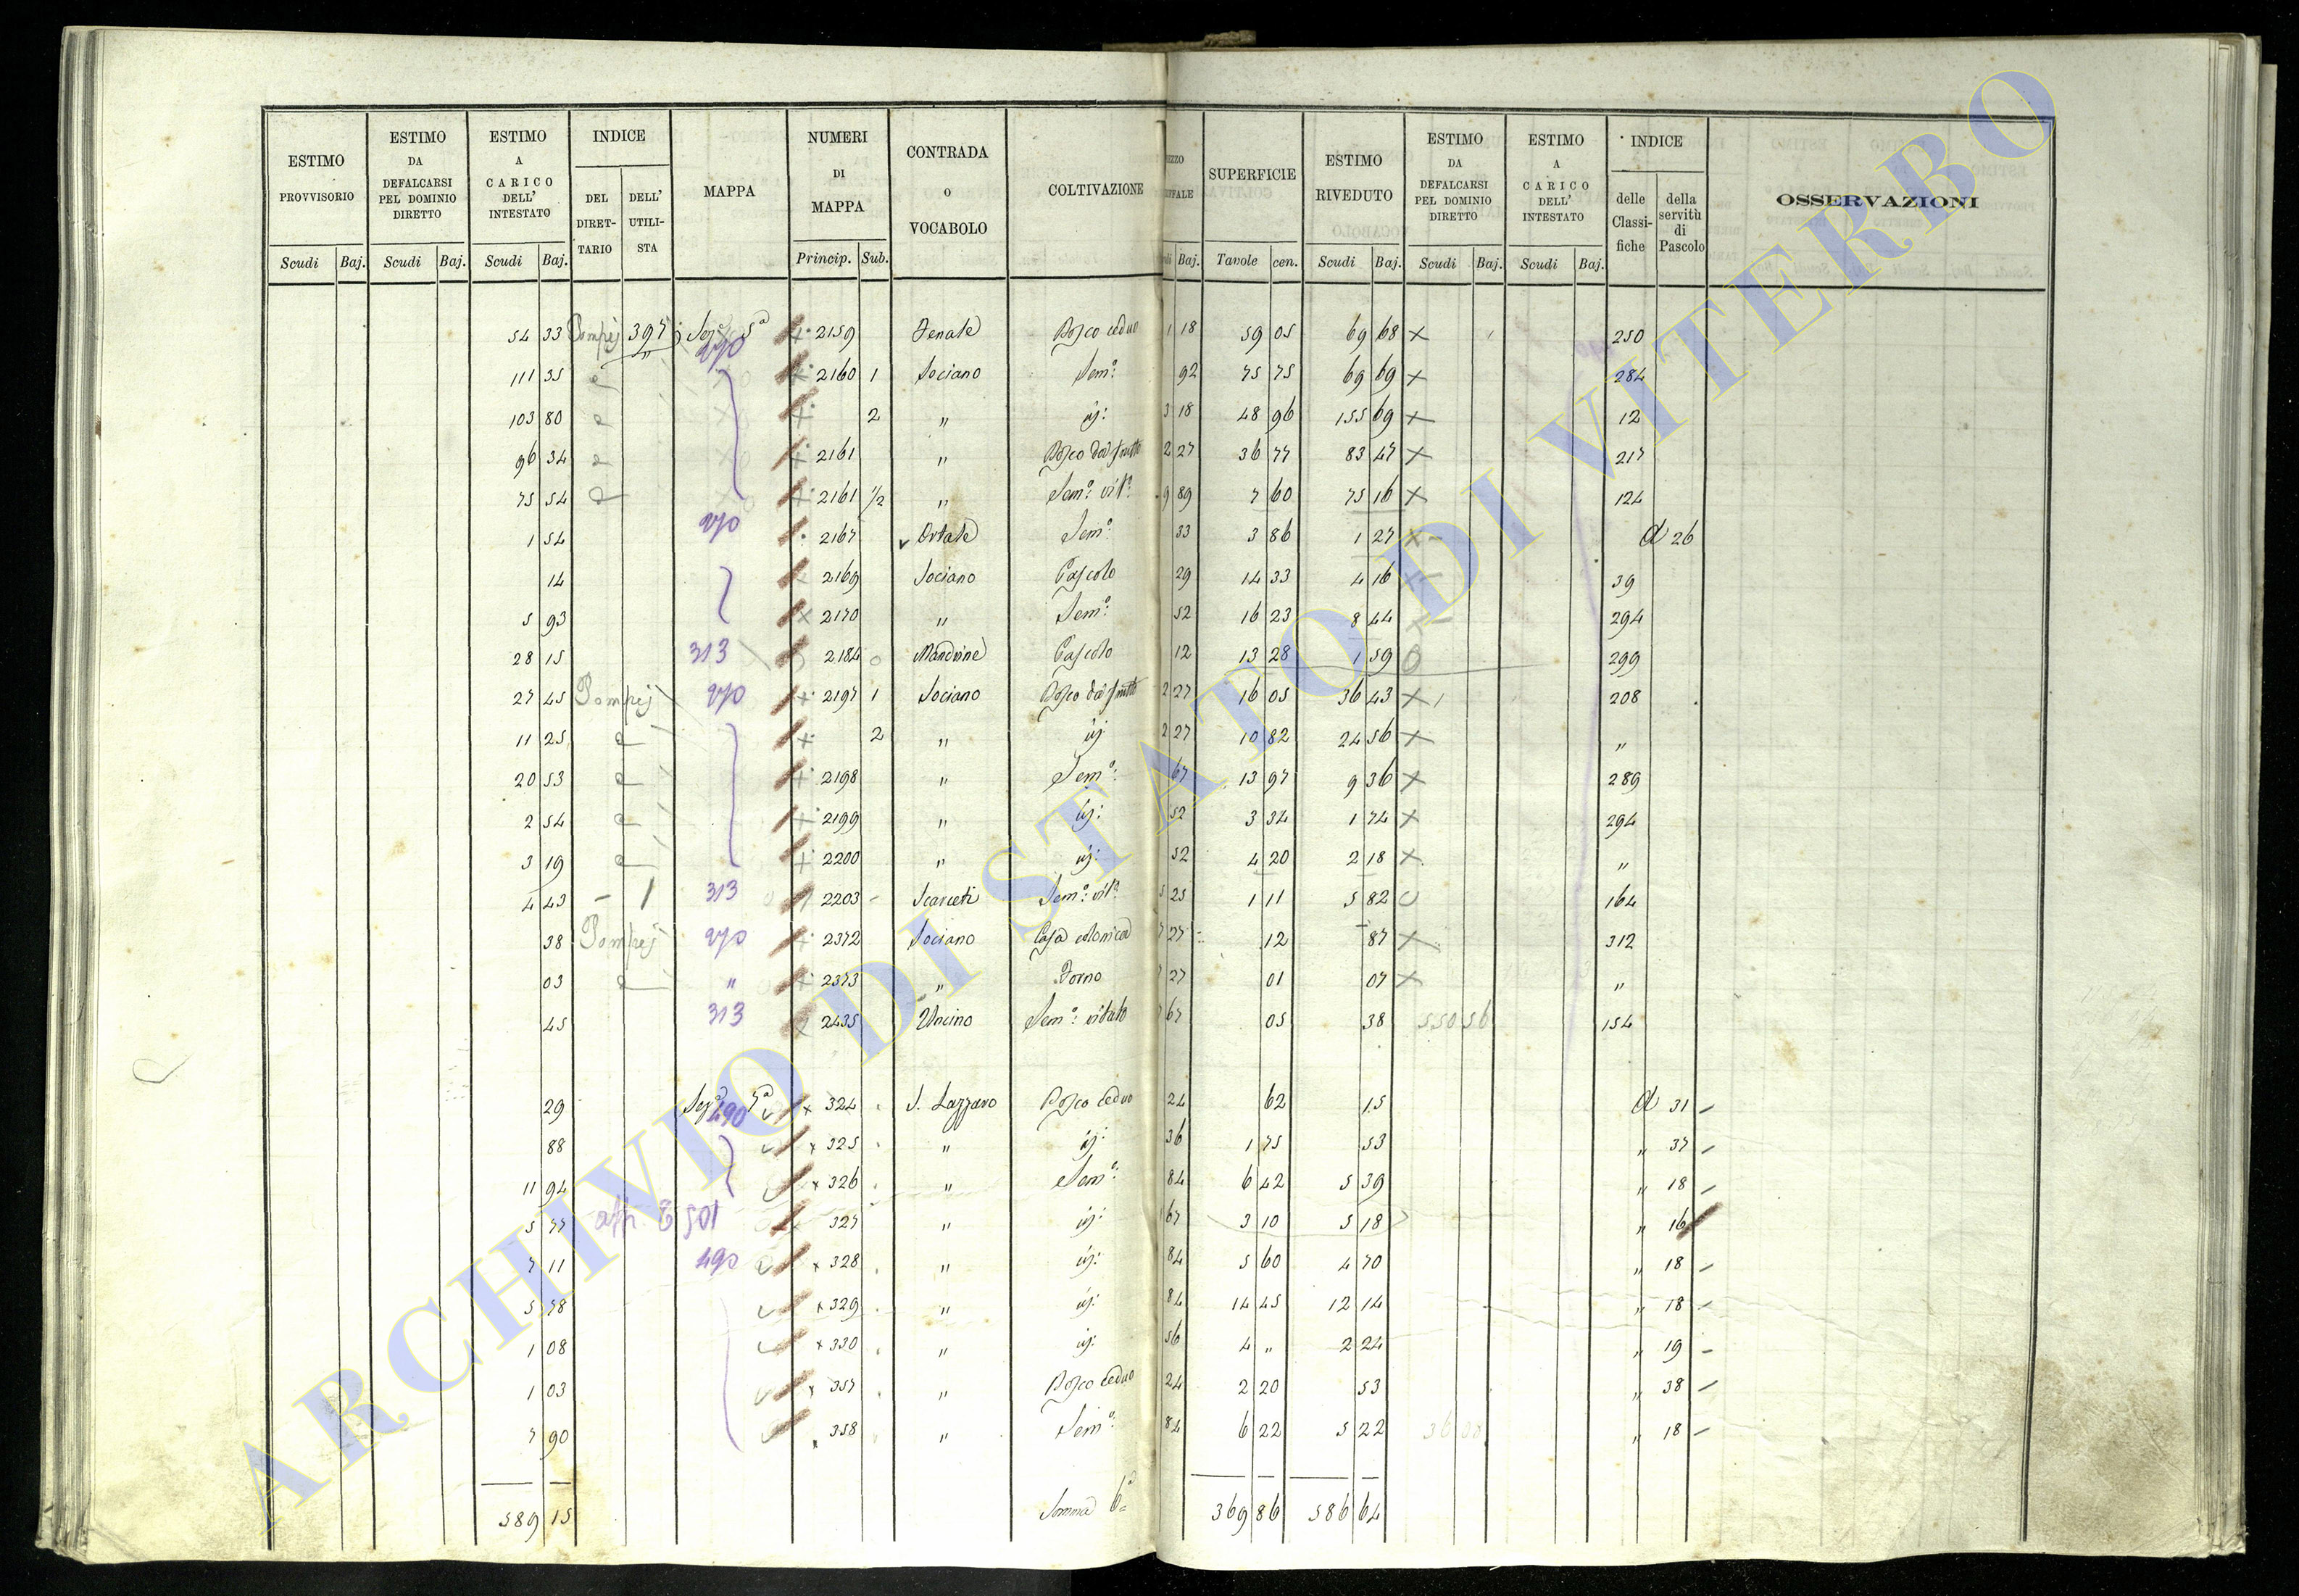 ESTIMO PROVVISORIO | ESTIMO DA DEFALCARSI PEL DOMINIO DIRETTO | ESTIMO A CARICO DELL' INTESTATO | INDICE | MAPPA | NUMERI DI MAPPA | CONTRADA o VOCABOLO | COLTIVAZIONE | EZZO UFFALE | SUPERFICIE | ESTIMO RIVEDUTO | ESTIMO DA DEFALCARSI PEL DOMINIO DIRETTO | ESTIMO A CARICO DELL' INTESTATO | INDICE | OSSERVAZIONI
DEL DIRETTARIO | DELL' UTILISTA | delle Classifiche | della servitù di Pascolo
Scudi | Baj. | Scudi | Baj. | Scudi | Baj. | Princip. | Sub. | Baj. | Tavole | cen. | Scudi | Baj. | Scudi | Baj. | Scudi | Baj.
54 33 Pompej 397 Sez.ª 5ª 270 2159 Fenale Bosco ceduo 1 18 59 05 69 68 × 250
111 35 2160 1 Sociano Sem.º 92 75 75 69 69 × 284
103 80 2 " id: 3 18 48 96 155 69 × 12
96 34 2161 " Bosco da frutto 2 27 36 77 83 47 × 217
75 54 2161 1/2 " Sem.º vit.º 9 89 7 60 75 16 × 124
1 54 270 2167 Ortale Sem.º 33 3 86 1 27 × a 26
14 2169 Sociano Pascolo 29 14 33 4 16 × 39
5 93 × 2170 " Sem.º 52 16 23 8 44 × 294
28 15 313 2184 Mandrine Pascolo 12 13 28 1 59 0 299
27 45 Pompej 270 2197 1 Sociano Bosco da frutto 2 27 16 05 36 43 × 208
11 25 2 " id 2 27 10 82 24 56 × "
20 53 2198 " Sem.º 67 13 97 9 36 × 289
2 54 2199 " id: 52 3 34 1 74 × 294
3 19 2200 " id: 52 4 20 2 18 × "
4 43 313 2203 Scarceti Sem.º vit.º 5 25 1 11 5 82 164
38 Pompej 270 2372 Sociano Casa colonica 7 27 12 87 × 312
03 " 2373 " Forno 7 27 01 07 × "
45 313 2435 Uncino Sem.º vitato 7 67 05 38 550 56 154
29 Sez.ª 7ª 490 × 324 S. Lazzaro Bosco ceduo 24 62 15 a 31
88 × 325 " id: 36 1 75 53 " 37
11 94 × 326 " Sem.º 84 6 42 5 39 " 18
5 77 501 327 " id: 67 3 10 5 18 " 16
7 11 490 × 328 " id: 84 5 60 4 70 " 18
5 78 × 329 " id: 84 14 45 12 14 " 18
1 08 × 330 " id: 56 4 " 2 24 " 19
1 03 × 357 " Bosco ceduo 24 2 20 53 " 38
7 90 × 358 " Sem.º 84 6 22 5 22 " 18
589 15 Somma 6ª 369 86 586 64
ARCHIVIO DI STATO DI VITERBO